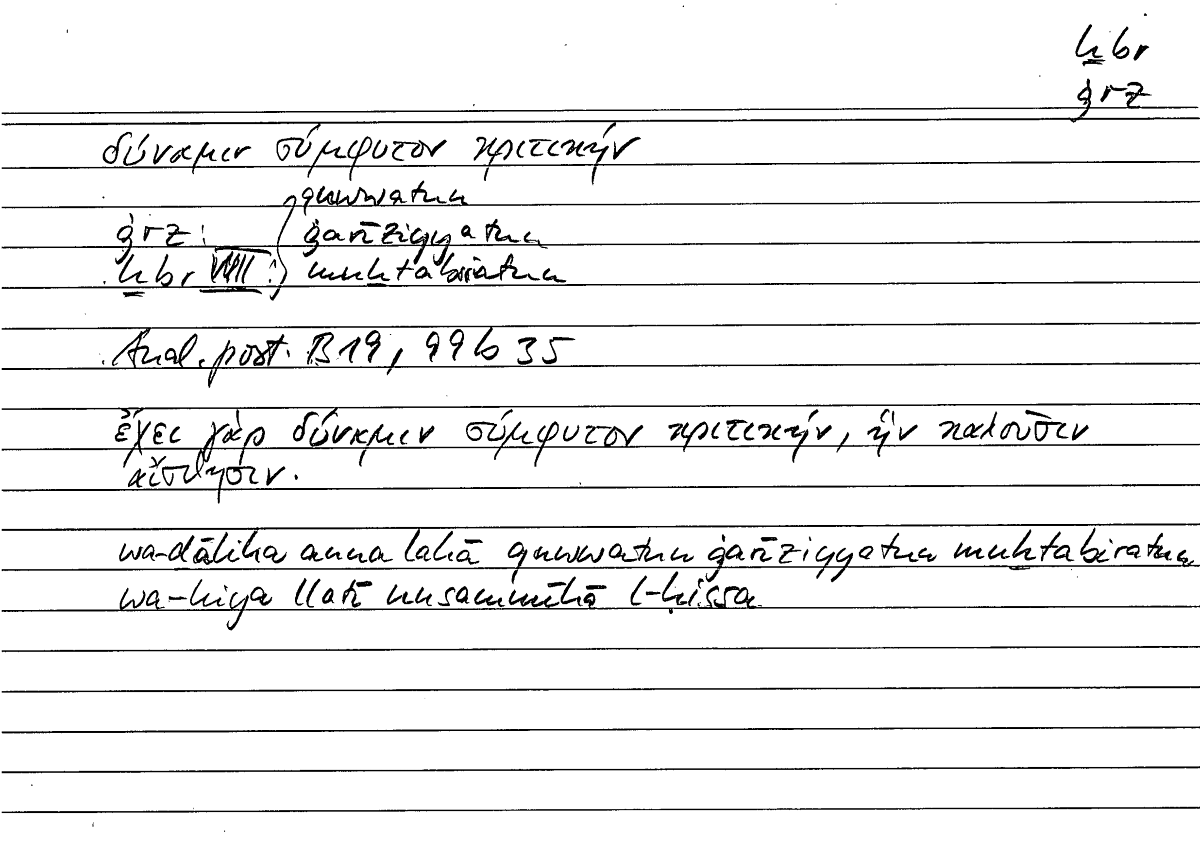 ḫbr
ġrz
δύναμιν σύμφυτον κριτικήν
quwwatun
ġrz: ġarīziyyatun
ḫbr VIII: muḫtabiratun
Anal. post. B19, 99b35
ἔχει γὰρ δύναμιν σύμφυτον κριτικήν, ἣν καλοῦσιν
αἴσθησιν.
wa-ḏālika anna lahā quwwatun ġarīziyyatun muḫtabiratun
wa-hiya llatī nusammīhā l-ḥissa